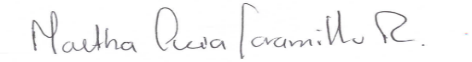 Martha Lucia Jaramillo R.